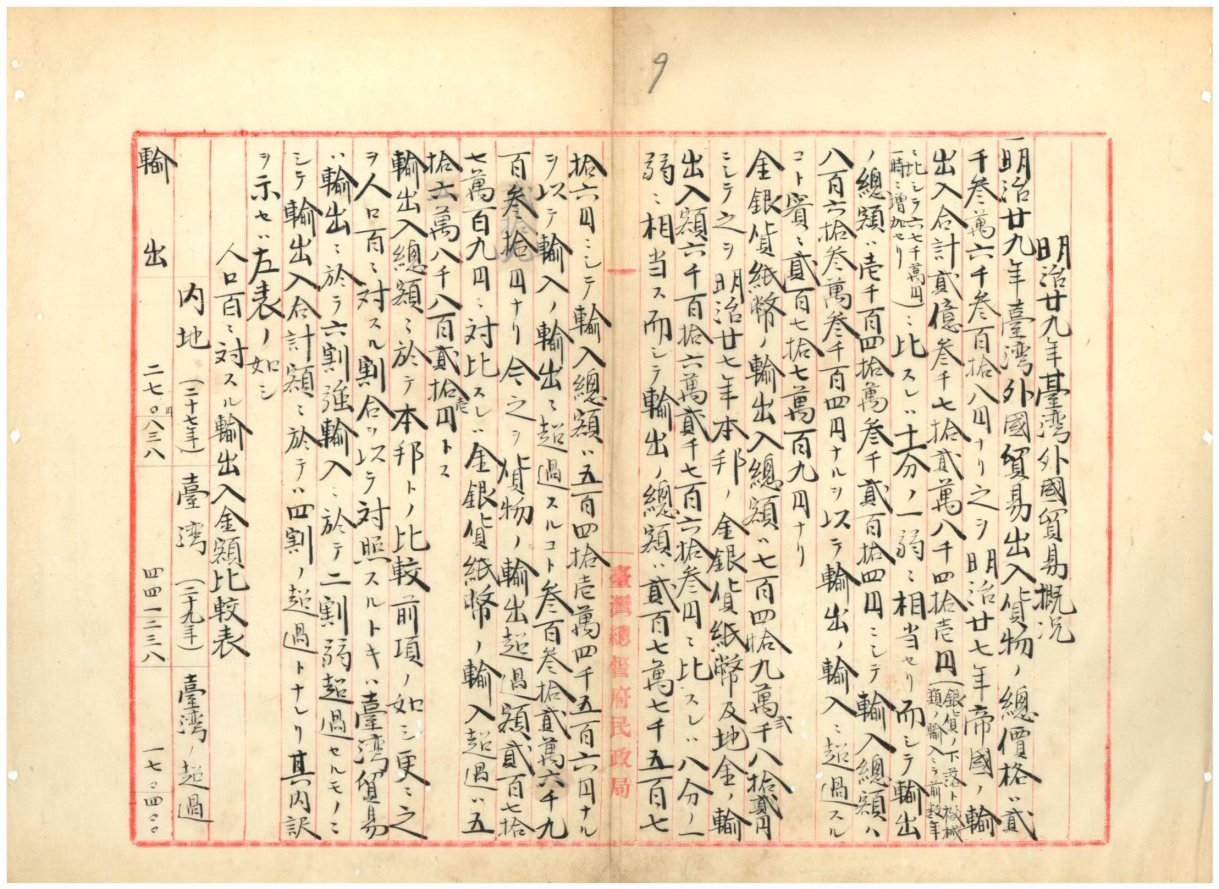 9
明治廿九年臺灣外國貿易概況
一明治廿九年臺湾外國貿易出入貨物ノ總價格ハ貳
千叁萬六千叁百拾八円ナリ之ヲ明治廿七年帝國ノ輸
出入合計貳億叁千七拾貳萬八千四拾壱円(銀貨ノ下落ト機械類ノ輸入ニテ前数年
ニ比シテ六七千萬円一時ニ増加セリ)ニ比スレハ十二分ノ一弱ニ相当セリ而シテ輸出
ノ總額ハ壱千百四拾萬叁千貳百拾四円ニシテ輸入總額ハ
八百六拾叁萬叁千百四円ナルヲ以テ輸出ノ輸入ニ超過スル
コト實ニ貳百七拾七萬百九円ナリ
金銀貨紙幣ノ輸出入總額ハ七百四拾九萬弐千八拾貳円
ニシテ之ヲ明治廿七年本邦ノ金銀貨紙幣及地金ノ輸
出入額六千百拾六萬貳千七百六拾叁円ニ比スレハ八分ノ一
弱ニ相当ス而シテ輸出ノ總額ハ貳百七萬七千五百七
臺灣總督府民政局
拾六円ニシテ輸入總額ハ五百四拾壱萬四千五百六円ナル
ヲ以テ輸入ノ輸出ニ超過スルコト叁百叁拾貳萬六千九
百叁拾円ナリ今之ヲ貨物ノ輸出超過額貳百七拾
七萬百九円ニ対比スレハ金銀貨紙幣ノ輸入超過ハ五
拾六萬八千八百貳拾壱円トス
輸出入總額ニ於テ本邦トノ比較前項ノ如シ更ニ之
ヲ人口百ニ対スル割合ヲ以テ対照スルトキハ臺湾貿易
ハ輸出ニ於テ六割強輸入ニ於テ二割弱超過セルモノニ
シテ輸出入合計額ニ於テハ四割ノ超過トナレリ其内訳
ヲ示セハ左表ノ如シ
人口百ニ対スル輸出入金額比較表
内地(二十七年) 臺湾(二十九年) 臺湾ノ超過
輸出 二七〇円八三八 四四一二三八 一七〇四〇〇